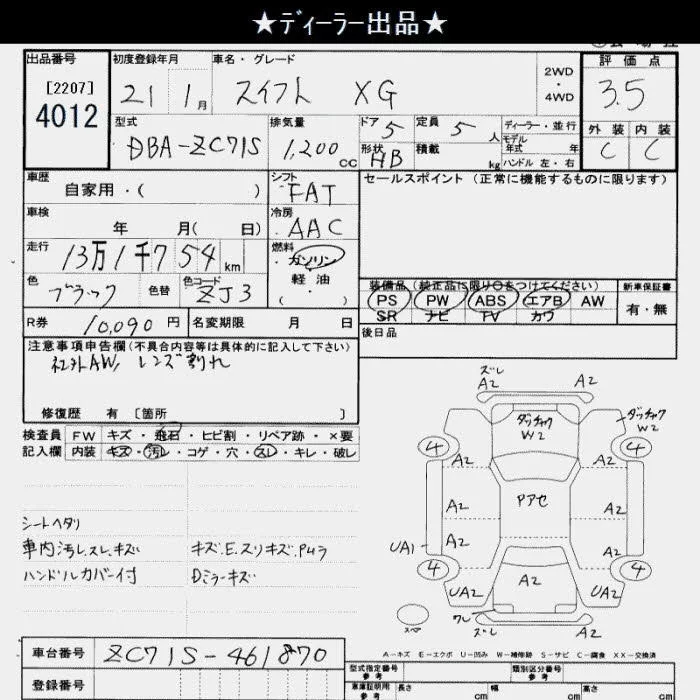 ★ディーラー出品★
出品番号
[2207]
4012
初度登録年月
21 1月
車名・グレード
スイフト XG
2WD
・
4WD
評価点
3.5
外装 内装
C C
型式
DBA-ZC71S
排気量
1,200 CC
ドア 5
形状 HB
定員 5 人
積載 kg
ディーラー・並行
モデル年式 年
ハンドル 左・右
車歴
自家用・( )
シフト
FAT
セールスポイント (正常に機能するものに限ります)
車検
年 月( 日)
冷房
AAC
走行
13万1千754 km
燃料
ガソリン
軽油
( )
色
ブラック
色替
色コード
ZJ3
装備品 (純正品に限り○をつけてください)
PS PW ABS エアB AW
SR ナビ TV カワ
新車保証書
有・無
R券 10,090 円
名変期限 月 日
後日品
注意事項申告欄(不具合内容等は具体的に記入して下さい)
社外AW, レンズ割れ
修復歴 有 [箇所 ]
検査員 FW キズ・飛石・ヒビ割・リペア跡・×要
記入欄 内装 キズ・汚レ・コゲ・穴・スレ・キレ・破レ
シートヘタリ
車内汚レ.スレ.キズ
ハンドルカバー付
キズ.E.スリキズ.Pムラ
Dミラーキズ
ズレ
A2 A2
ダッチャク
W2
ダッチャク
W2
4 4
A2 A2
Pアセ
A2 A2
A2
UA1
4 4
UA2 A2 UA2
ワレ
ズレ A2
スペア
A-キズ E-エクボ U-凹み W-補修跡 S-サビ C-腐食 XX-交換済
車台番号 ZC71S-461870
登録番号
型式指定番号
参考
類別区分番号
参考
車庫証明用
参考
長さ cm
幅 cm
高さ cm